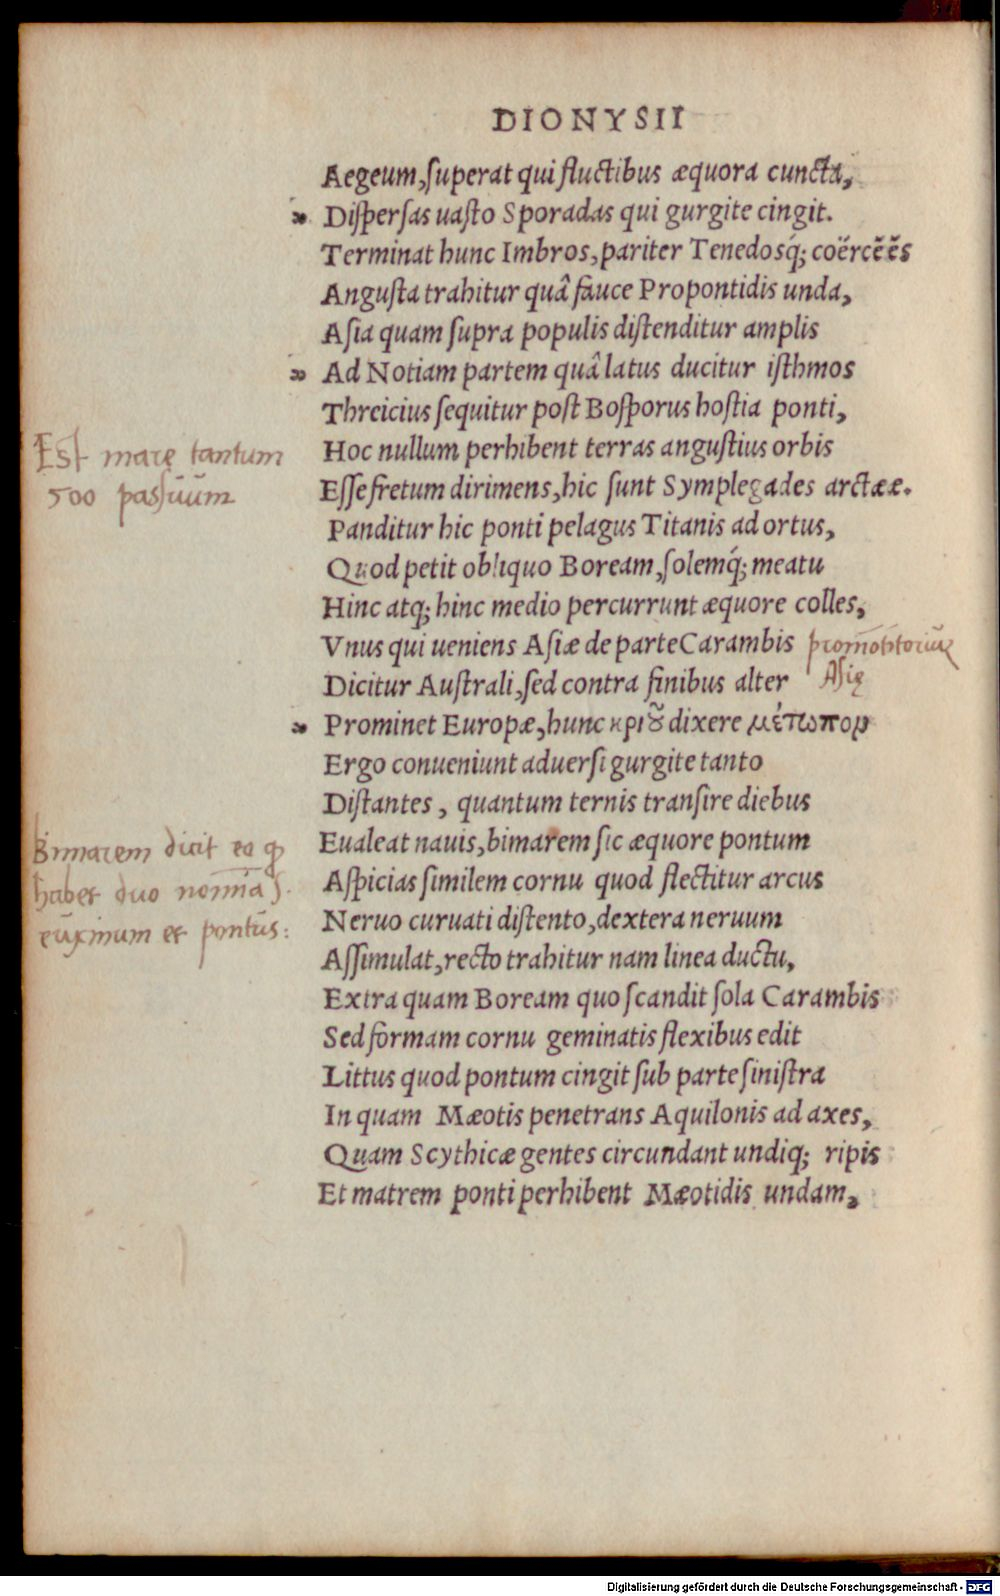 DIONYSII
Aegeum, ſuperat qui fluctibus æquora cuncta,
Diſperſas uaſto Sporadas qui gurgite cingit.
Terminat hunc Imbros, pariter Tenedosq́; coërcẽẽs
Anguſta trahitur quâ fauce Propontidis unda,
Aſia quam ſupra populis diſtenditur amplis
Ad Notiam partem quâ latus ducitur iſthmos
Threicius ſequitur poſt Boſporus hoſtia ponti,
Hoc nullum perhibent terras anguſtius orbis
Est mare tantum
Eſſe fretum dirimens, hic ſunt Symplegades arctææ.
500 paſsuum
Panditur hic ponti pelagus Titanis ad ortus,
Quod petit obliquo Boream, ſolemq́; meatu
Hinc atq; hinc medio percurrunt æquore colles,
Vnus qui ueniens Aſiæ de parte Carambis
promõtoriũ
Dicitur Auſtrali, ſed contra finibus alter
Aſię
Prominet Europæ, hunc κριȣ͂ dixere μέτωπον
Ergo conueniunt aduerſi gurgite tanto
Diſtantes, quantum ternis tranſire diebus
Eualeat nauis, bimarem ſic æquore pontum
Bimarem dicit eo ꝙ
Aſpicias ſimilem cornu quod flectitur arcus
habet duo nomina ſ.
Neruo curuati diſtento, dextera neruum
euxinum et pontũs:
Aſſimulat, recto trahitur nam linea ductu,
Extra quam Boream quo ſcandit ſola Carambis
Sed formam cornu geminatis flexibus edit
Littus quod pontum cingit ſub parte ſiniſtra
In quam Mæotis penetrans Aquilonis ad axes,
Quam Scythicæ gentes circundant undiq; ripis
Et matrem ponti perhibent Mæotidis undam,
Digitalisierung gefördert durch die Deutsche Forschungsgemeinschaft - DFG